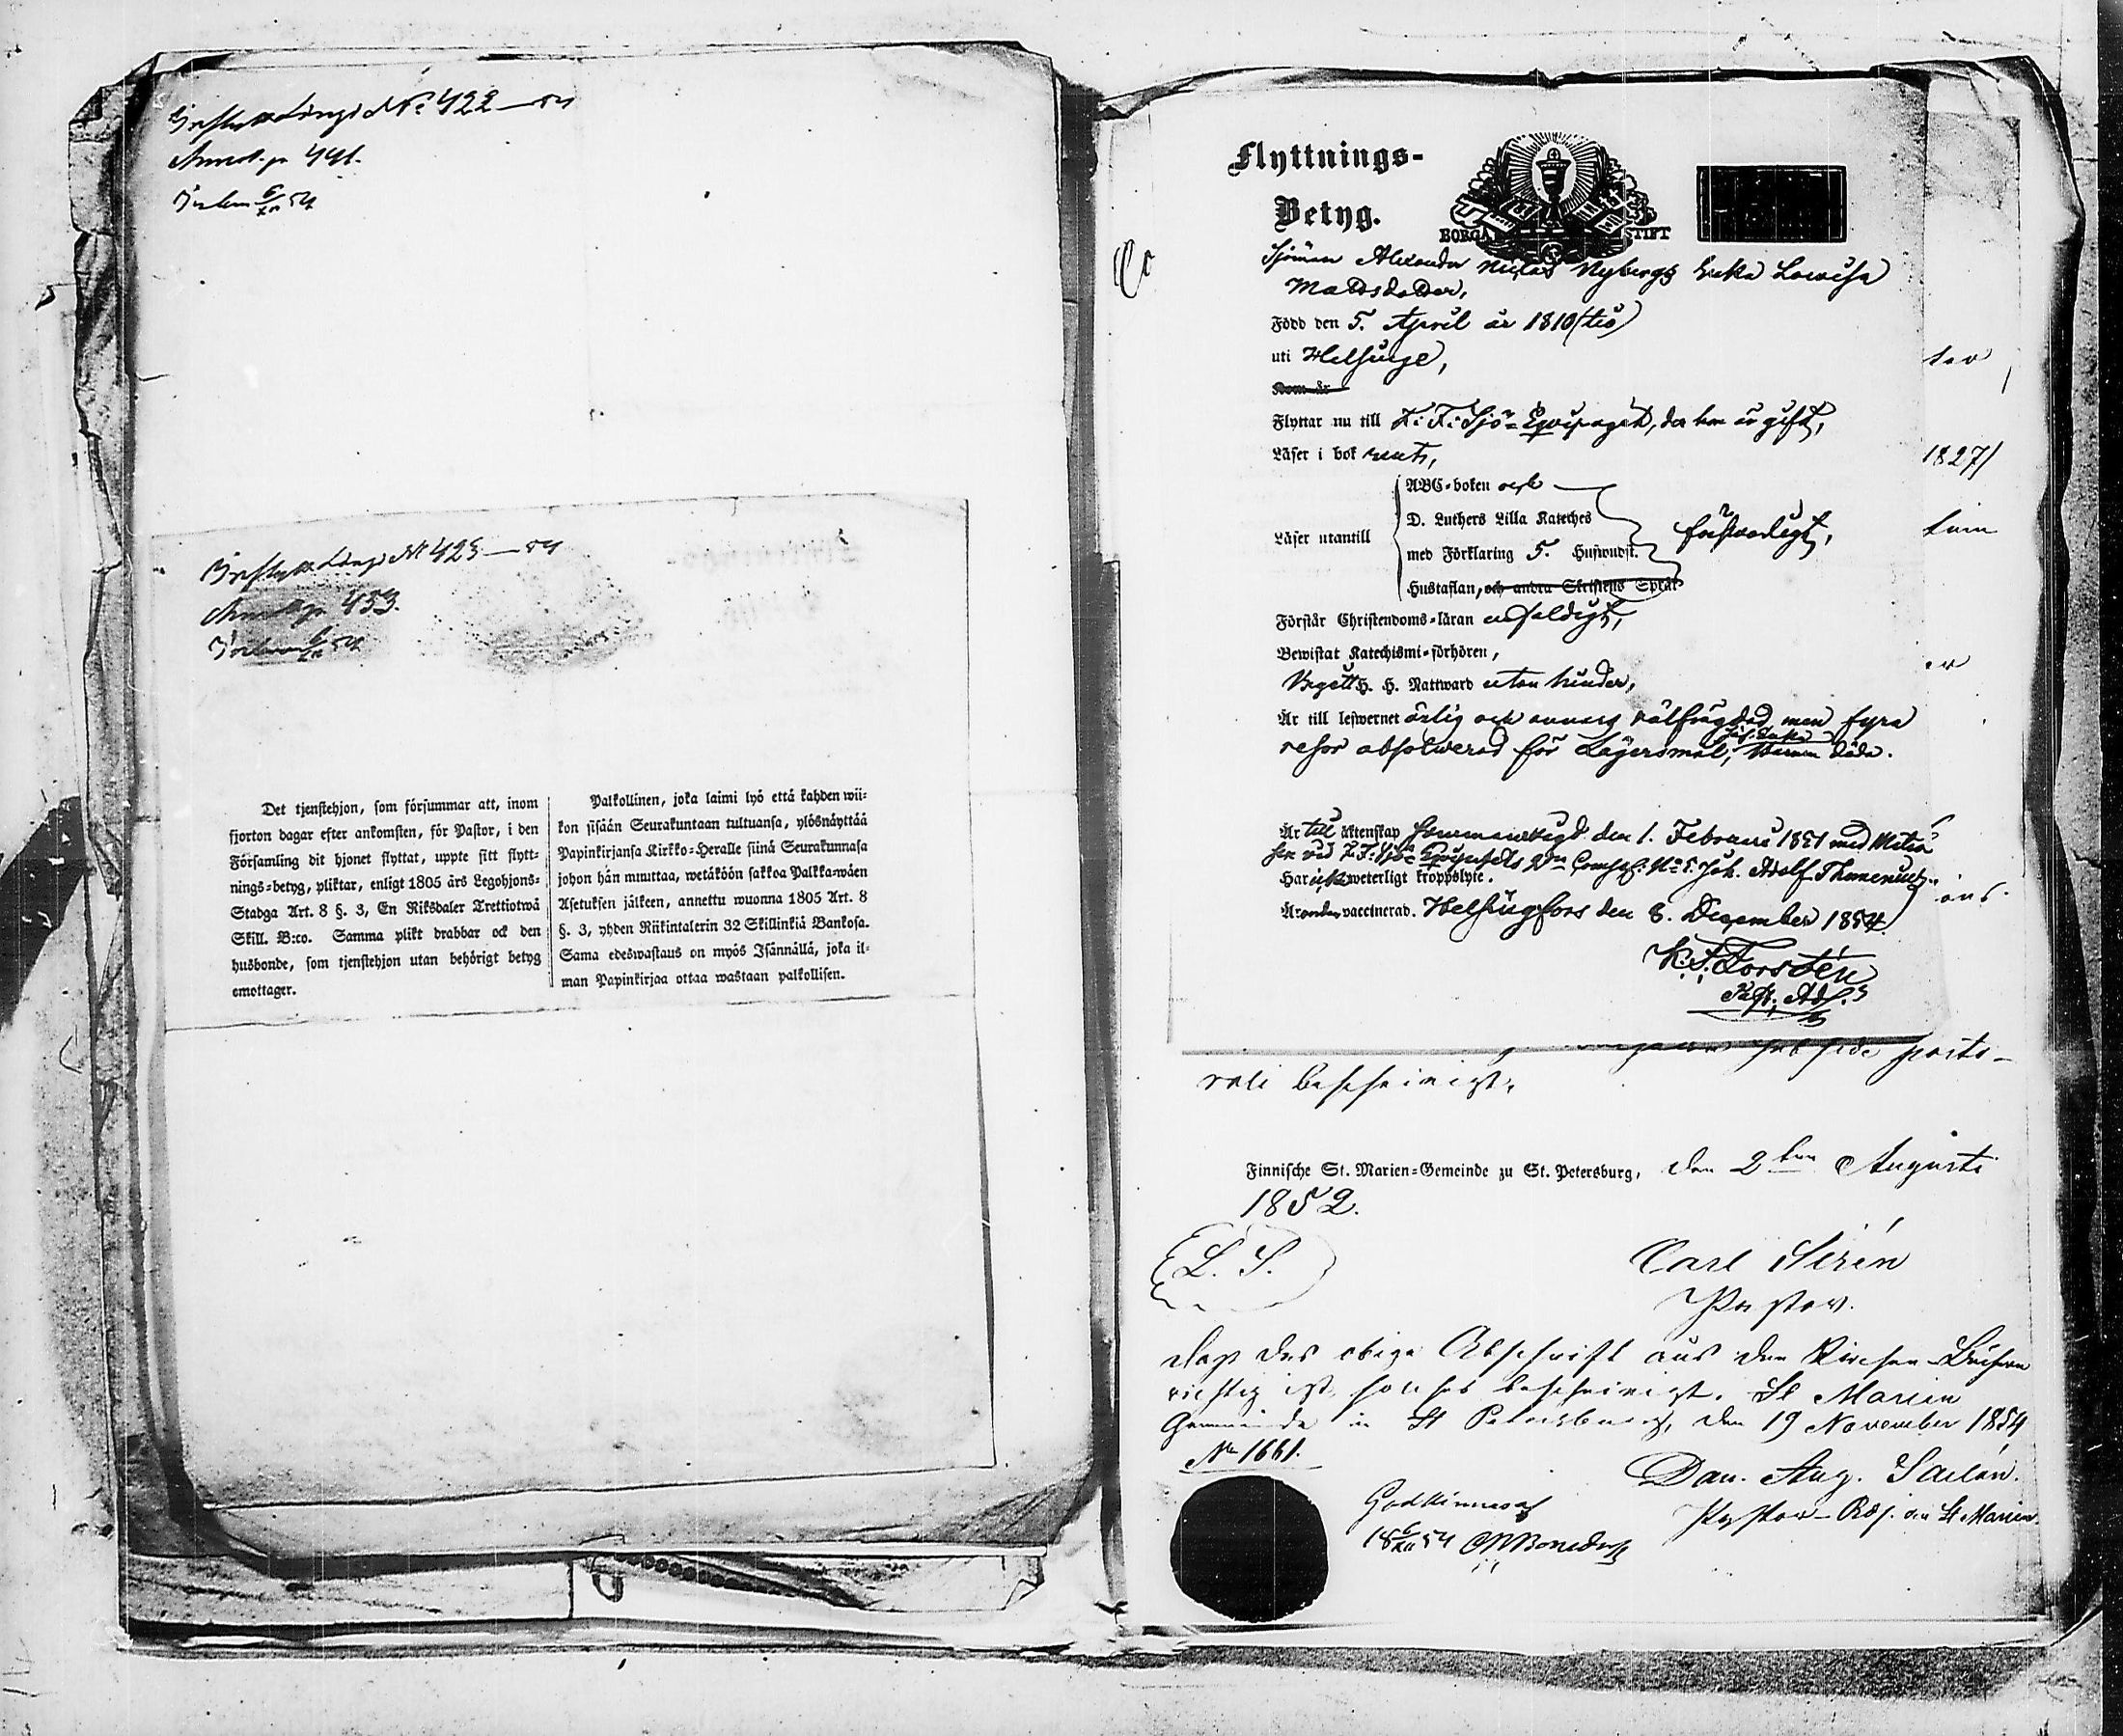 Inflyttningi № 422—54
Annot. p. 441.
6/XII 54
Inflyttningi № 423—54
Annot. p. 453.
6/XII 54
Det tjenstehjon, som försummar att, inom
fjorton dagar efter ankomsten, för Pastor, i den
Församling dit hjonet flyttat, uppte sitt flytt-
nings-betyg, pliktar, enligt 1805 års Legohjons-
Stadga Art. 8 §. 3, En Riksdaler Trettiotwå
Skill. B:co. Samma plikt drabbar ock den
husbonde, som tjenstehjon utan behörigt betyg
emottager.
Palkollinen, joka laimi lyö että kahden wii-
kon sisään Seurakuntaan tultuansa, ylösnäyttää
Papinkirjansa Kirkko-Heralle siinä Seurakunnasa
johon hän muuttaa, wetäköön sakkoa Palkka-wäen
Asetuksen jälkeen, annettu wuonna 1805 Art. 8
§. 3, yhden Riikintalerin 32 Skillinkiä Bankosa.
Sama edeswastaus on myös Isännällä, joka il-
man Papinkirjaa ottaa wastaan palkollisen.
Flyttnings-
Betyg.
BORGÅ STIFT
Sjöman Alexander Niclas Nybergs Enka Lowisa
Mattsdotter,
Född den 5. April år 1810 (tio)
uti Helsinge,
Kom år
Flyttar nu till K. F. Sjö-Equipaget, der hon är gift,
Läser i bok rent,
Läser utantill
ABC-boken och
D. Luthers Lilla Kateches
med Förklaring 5. Hufwudst.
Hustaflan, och andra Skriftens Språk
förswarligt,
Förstår Christendoms-läran enfaldigt,
Bewistat Katechismi-förhören,
Begått H. H. Nattward utan hinder,
Är till lefwernet ärlig och annars wälfrägdad men fyra
resor absolwerad för Lägersmål, döda.
Är till äktenskap sammanwigd den 1. Februari 1851 med Matro-
sen wid K. F. Sjö Equipagets 2dra Comp. N:o 5. Joh. Adolf
Har icke weterligt kroppslyte.
Är vaccinerad. Helsingfors den 6. December 1854.
K. F. Forstén
Past. Adj.
1827/
pasto-
rali bescheinigt.
Finnische St. Marien-Gemeinde zu St. Petersburg, den 2ten Augusti
1852.
L. S.
Carl Sirén
Pastor.
Dass das obige Abschrift aus den Kirchen-Büchern
richtig ist, solches bescheinigt. St Marien
Gemeinde in St Petersburg, den 19 November 1854
№ 1661.
Dan. Aug.
Pastor-Adj. an St Marien.
Godkännes
18 6/XII 54